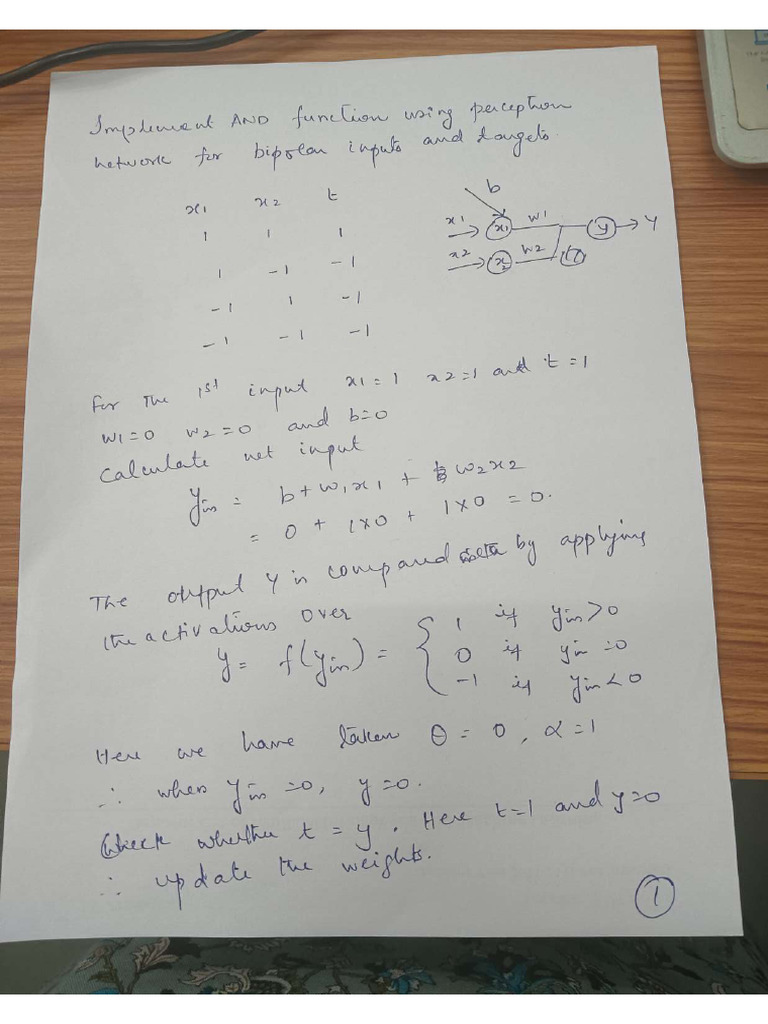 Implement AND function using perceptron
network for bipolar inputs and targets.
x1 x2 t
1 1 1
1 -1 -1
-1 1 -1
-1 -1 -1
b
x1 x1 w1 y Y
x2 x2 w2
For the 1st input x1=1 x2=1 and t=1
w1=0 w2=0 and b=0
Calculate net input
yin = b+w1x1 + w2x2
= 0 + 1x0 + 1x0 = 0.
The output y is compared by applying
the activations over
y = f(yin) = { 1 if yin>0
0 if yin =0
-1 if yin<0
Here we have taken θ = 0, α=1
∴ when yin =0, y=0.
Check whether t = y. Here t=1 and y=0
∴ update the weights.
1